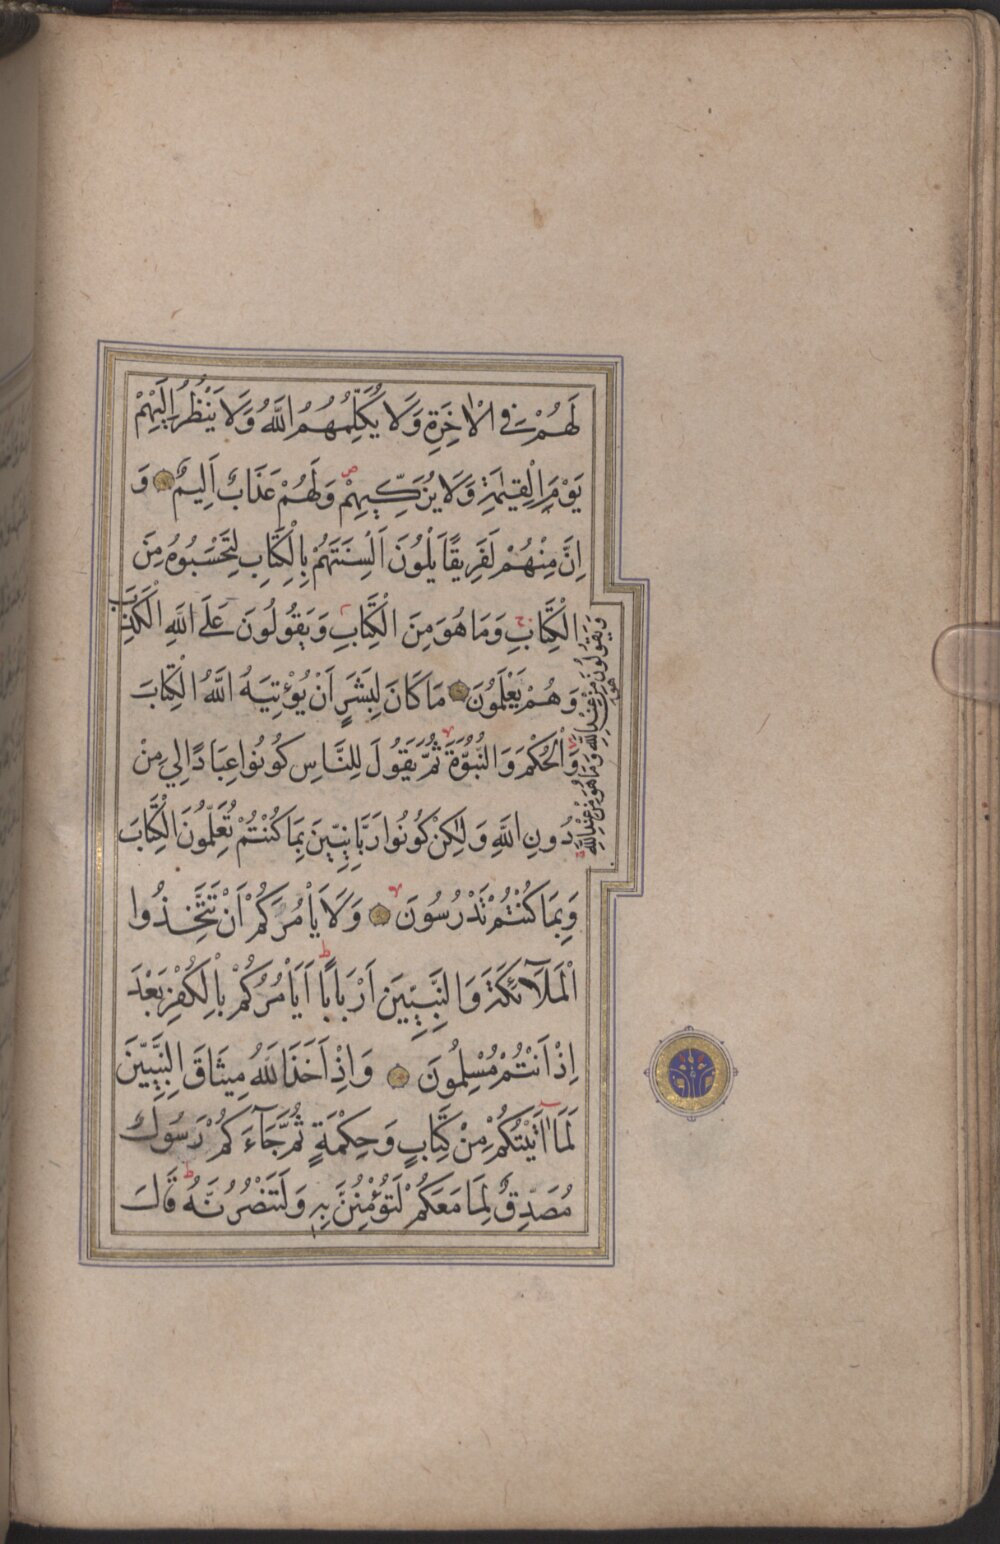 لَهُمْ فِي الْاٰخِرَةِ وَلَا يُكَلِّمُهُمُ اللّٰهُ وَلَا يَنْظُرُ اِلَيْهِمْ
يَوْمَ الْقِيٰمَةِ وَلَا يُزَكِّيهِمْ وَلَهُمْ عَذَابٌ اَلِيمٌ وَ
اِنَّ مِنْهُمْ لَفَرِيقًا يَلْوُنَ اَلْسِنَتَهُمْ بِالْكِتَابِ لِتَحْسَبُوهُ مِنَ
الْكِتَابِ وَمَا هُوَ مِنَ الْكِتَابِ وَيَقُولُونَ عَلَى اللّٰهِ الْكَذِبَ
وَيَقُولُونَ هُوَ مِنْ عِنْدِ اللّٰهِ وَمَا هُوَ مِنْ عِنْدِ اللّٰهِ
وَهُمْ يَعْلَمُونَ مَا كَانَ لِبَشَرٍ اَنْ يُؤْتِيَهُ اللّٰهُ الْكِتَابَ
وَالْحُكْمَ وَالنُّبُوَّةَ ثُمَّ يَقُولَ لِلنَّاسِ كُونُوا عِبَادًا لِي مِنْ
دُونِ اللّٰهِ وَلٰكِنْ كُونُوا رَبَّانِيِّينَ بِمَا كُنْتُمْ تُعَلِّمُونَ الْكِتَابَ
وَبِمَا كُنْتُمْ تَدْرُسُونَ وَلَا يَاْمُرَكُمْ اَنْ تَتَّخِذُوا
الْمَلَآئِكَةَ وَالنَّبِيِّينَ اَرْبَابًا اَيَاْمُرُكُمْ بِالْكُفْرِ بَعْدَ
اِذْ اَنْتُمْ مُسْلِمُونَ وَاِذْ اَخَذَ اللّٰهُ مِيثَاقَ النَّبِيِّينَ
لَمَا اٰتَيْتُكُمْ مِنْ كِتَابٍ وَحِكْمَةٍ ثُمَّ جَآءَكُمْ رَسُولٌ
مُصَدِّقٌ لِمَا مَعَكُمْ لَتُؤْمِنُنَّ بِهِ وَلَتَنْصُرُنَّهُ قَالَ